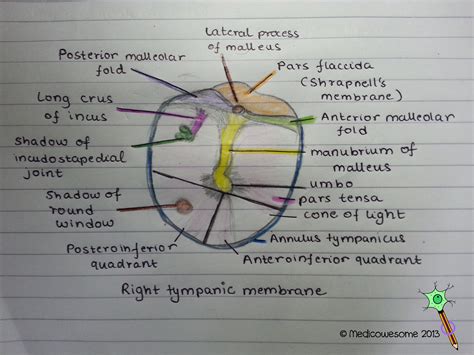 Lateral process
of malleus
Posterior malleolar
fold
Pars flaccida
(Shrapnell's
membrane)
Long crus
of incus
Anterior malleolar
fold
Shadow of
incudostapedial
joint
manubrium of
malleus
umbo
Shadow of
round
window
pars tensa
cone of light
Annulus tympanicus
Posteroinferior
quadrant
Anteroinferior quadrant
Right tympanic membrane
© Medicowesome 2013